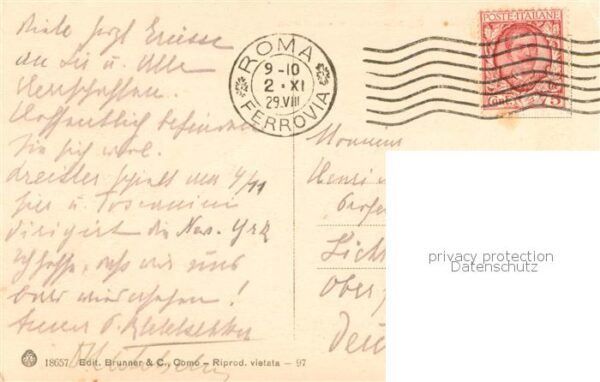 Viele herzl Grüsse
an Sie u. Alle
Herrschaften.
Hoffentlich befinden
Sie sich wol.
Kreisler spielt am 4/11
hier u. Toscanini
dirigirt die New. Yrk
Ich hoffe, daß wir uns
bald wiedersehen!
ROMA
9-10
2 · XI
29.VIII
FERROVIA
POSTE·ITALIANE
CENT. 75
Monsieur
Henri
Profes
Lich
Ober
Deu
privacy protection
Datenschutz
18657 Edit. Brunner & C., Como – Riprod. vietata – 97